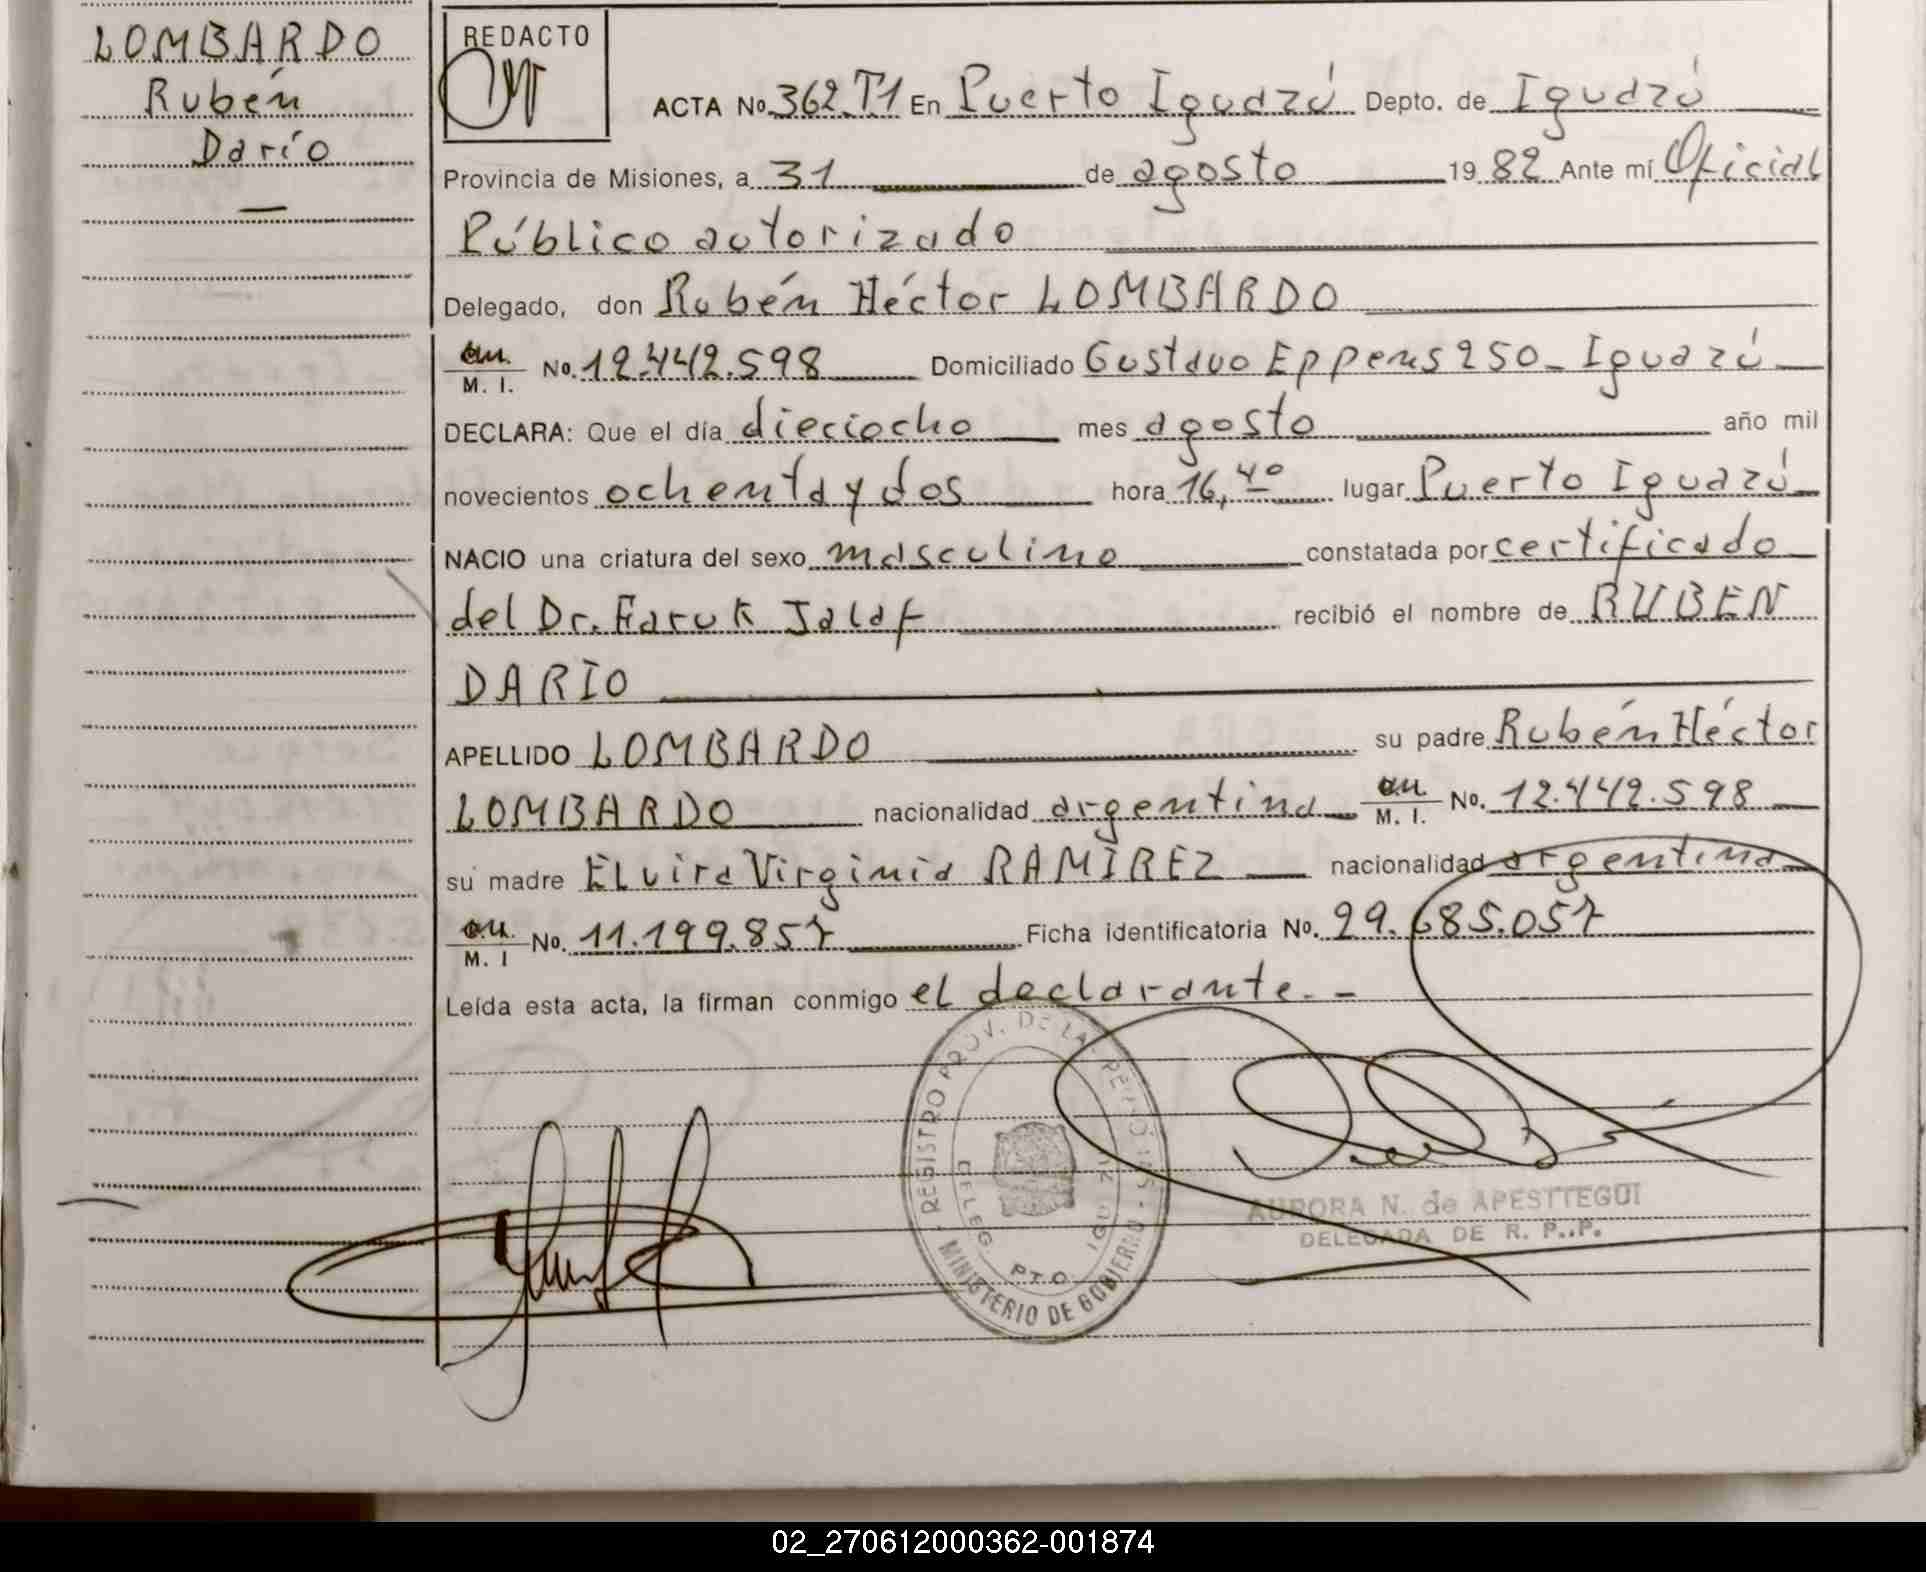 LOMBARDO
Rubén
Darío
REDACTO
ACTA No. 362 T1 En Puerto Iguazú Depto. de Iguazú
Provincia de Misiones, a 31 de agosto 1982 Ante mí Oficial
Público autorizado
Delegado, don Rubén Héctor LOMBARDO
M. I. No. 12.442.598 Domiciliado Gustavo Eppens 250 - Iguazú
DECLARA: Que el día dieciocho mes agosto año mil
novecientos ochenta y dos hora 16,40 lugar Puerto Iguazú
NACIO una criatura del sexo masculino constatada por certificado
del Dr. Faruk Jalaf recibió el nombre de RUBEN
DARÍO
APELLIDO LOMBARDO su padre Rubén Héctor
LOMBARDO nacionalidad argentina M. I. No. 12.442.598
su madre Elvira Virginia RAMÍREZ nacionalidad argentina
M. I No. 11.199.857 Ficha identificatoria No. 29.685.057
Leída esta acta, la firman conmigo el declarante. -
REGISTRO PROV. DE LAS PERSONAS - MINISTERIO DE GOBIERNO
DELEG. PTO. IGUAZU
AURORA N. de APESTTEGUI
DELEGADA DE R. P..P.
02_270612000362-001874